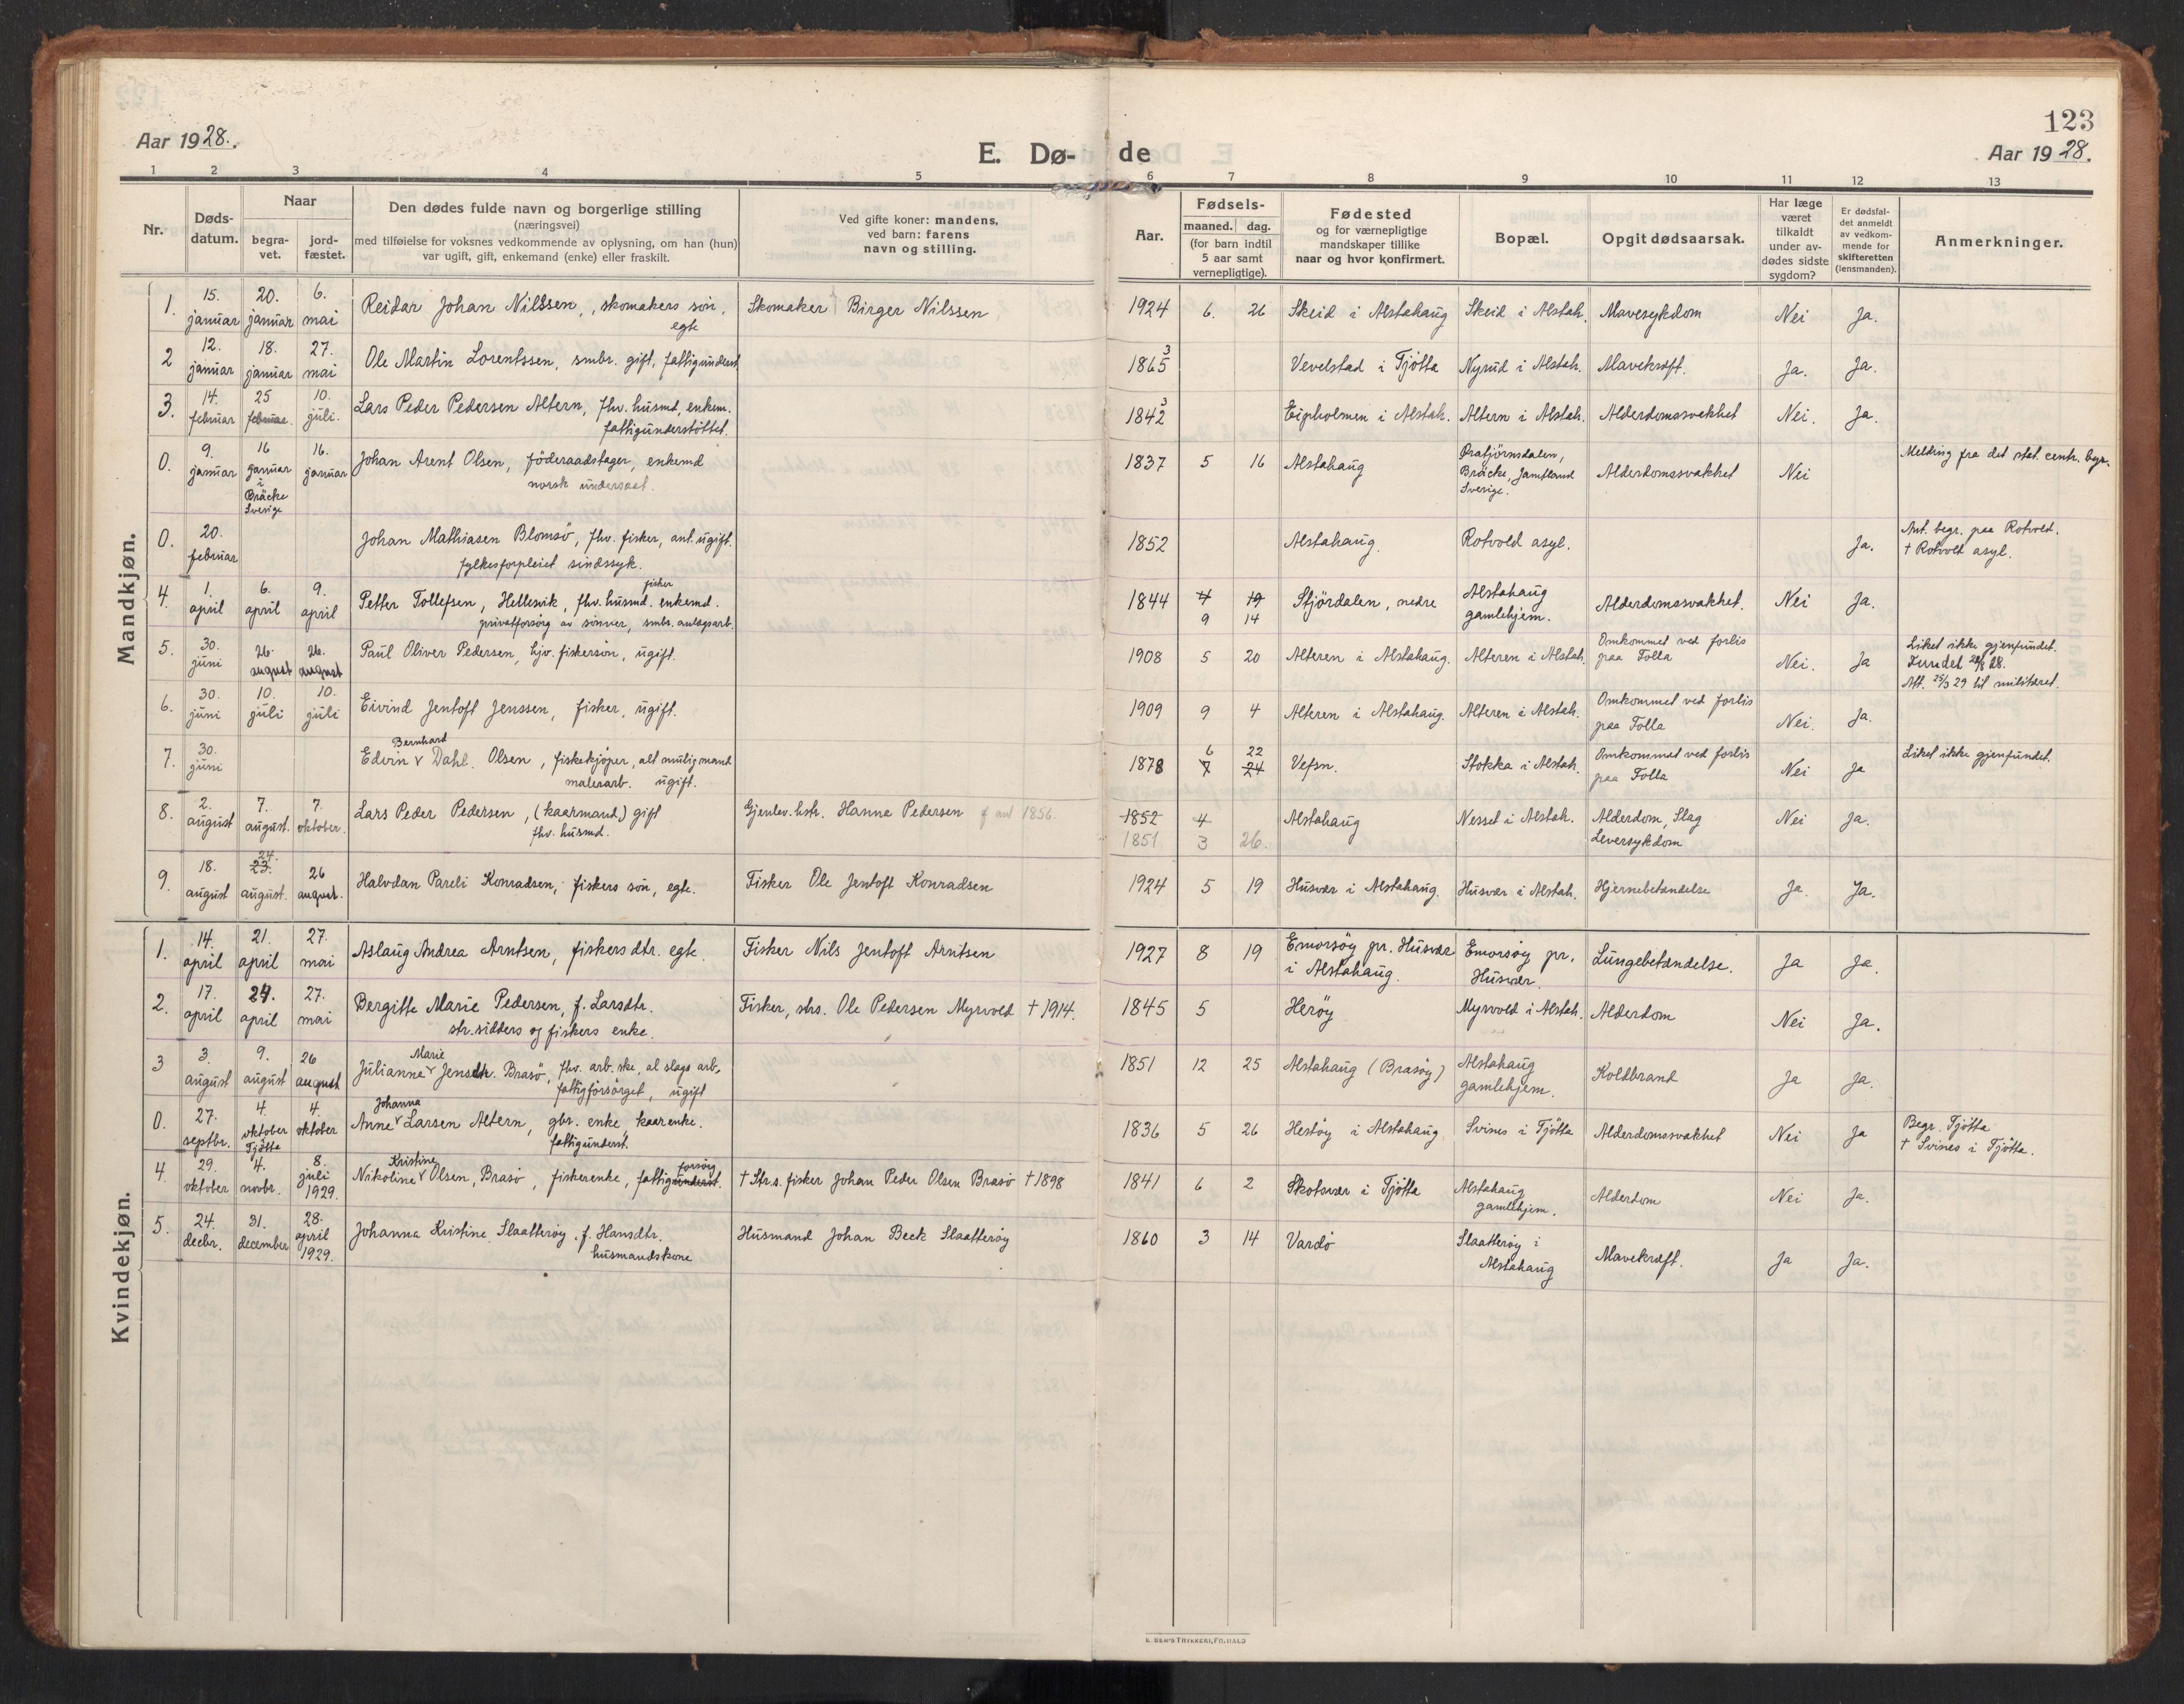 123
Aar 1928.
E. Dø- de
Aar 1928.
1 2 3 4 5 6 7 8 9 10 11 12 13
Nr.
Døds-
datum.
Naar
begra-
vet.
jord-
fæstet.
Den dødes fulde navn og borgerlige stilling
(næringsvei)
med tilføielse for voksnes vedkommende av oplysning, om han (hun)
var ugift, gift, enkemand (enke) eller fraskilt.
Ved gifte koner: mandens,
ved barn: farens
navn og stilling.
Aar.
Fødsels-
maaned. dag.
(for barn indtil
5 aar samt
vernepligtige).
Fødested
og for værnepligtige
mandskaper tillike
naar og hvor konfirmert.
Bopæl.
Opgit dødsaarsak.
Har læge
været
tilkaldt
under av-
dødes sidste
sygdom?
Er dødsfal-
det anmeldt
av vedkom-
mende for
skifteretten
(lensmanden).
Anmerkninger.
Mandkjøn.
1. 15. januar 20. januar 6. mai Reidar Johan Nilssen, skomakers søn, Skomaker Birger Nilssen 1924 6. 26 Skeid i Alstahaug Skeid i Alstah. Mavesykdom Nei Ja.
egte
2 12. januar 18. januar 27. mai Ole Martin Lorentssen, smbr. gift, fattigunderst. 1865 3 Vevelstad i Tjøtta Nyrud i Alstah. Mavekræft. Ja. Ja.
3. 14. februar 25 februar. 10. juli. Lars Peder Pedersen Altern, fhv. husmd, enkem. 1842 3 Eipholmen i Alstah. Altern i Alstah. Alderdomssvakhet Nei. Ja.
fattigunderstöttet.
0. 9. januar 16 januar i Bräcke Sverige 16. januar Johan Arent Olsen, föderaadstager, enkemd 1837 5 16 Alstahaug Bräcke, Jamtland Sverige. Alderdomssvakhet Nei Melding fra det stat. centr. byr.
norsk undersaat.
0. 20. februar Johan Mathiasen Blomsö, fhv. fisker, ant. ugift. 1852 Alstahaug. Rotvold asyl. Ja. Ant. begr. paa Rotvold.
fylkesforpleiet sindssyk. † Rotvold asyl.
4. 1. april 6. april 9. april Petter Tollefsen, Hellesvik, fhv. husmd. fisker enkemd. 1844 4 19 Stjördalen, nedre Alstahaug gamlehjem. Alderdomssvakhet. Nei Ja.
privatforsørg av sønner, smbr. anlægsarb. 9 14
5. 30. juni 26. august 26. august Paul Oliver Pedersen, hjv. fiskersøn, ugift. 1908 5 20 Alteren i Alstahaug. Alteren i Alstah. Omkommet ved forlis paa Folla Nei. Ja Liket ikke gjenfundet.
Fundet 20/8 28.
Att. 25/3 29 til militæret.
6. 30. juni 10. juli 10. juli Eivind Jentoft Jenssen, fisker, ugift. 1909 9 4 Alteren i Alstahaug. Alteren i Alstah. Omkommet ved forlis paa Folla Nei. Ja.
7. 30. juni Edvin Bernhard Dahl. Olsen, fiskekjøper, alt mulig mand 1878 6 22 Vefsn. Stokka i Alstah. Omkommet ved forlis paa Folla Nei Ja Liket ikke gjenfundet.
malerarb. ugift. 7 24
8. 2. august 7. august. 7. oktober. Lars Peder Pedersen, (kaarmand) gift Gjenlev. hstr. Hanna Pedersen f ant 1856. 1852 4 Alstahaug Nesset i Alstah. Alderdom, Slag Nei Ja.
fhv. husmd. 1851 3 26. Leversykdom
9. 18. august 24. 23. august. 26 august. Halvdan Pareli Konradsen, fiskers søn, egte. Fisker Ole Jentoft Konradsen 1924 5 19 Husvær i Alstahaug. Husvær i Alstah. Hjernebetændelse Ja. Ja.
Kvindekjøn.
1. 14. april 21. april 27. mai Aslaug Andrea Arntsen, fiskers dtr. egte. Fisker Nils Jentoft Arntsen 1927 8 19 Emorsøy pr. Husvær i Alstahaug. Emorsøy pr. Husvær. Lungebetændelse. Ja Ja.
2. 17. april 24. april 27. mai Bergitte Marie Pedersen, f. Larsdtr. Fisker, strs. Ole Pedersen Myrvold † 1914. 1845 5 Herøy Myrvold i Alstah. Alderdom Nei Ja.
str.sidders og fiskers enke.
3 3. august 9. august 26 august Julianne Marie Jensdtr. Brasö, fhv. arb.ske, al slags arb. 1851 12 25 Alstahaug (Brasøy) Alstahaug gamlehjem. Koldbrand Ja Ja.
fattigforsørget, ugift
0. 27. septbr. 4. oktober Tjøtta 4. oktober Anne Johanna Larsen Altern, gbr. enke, kaarenke. 1836 5 26 Hestøy i Alstahaug. Svines i Tjøtta Alderdomssvakhet Nei Ja Begr. Tjøtta
fattigunderst. † Svines i Tjøtta.
4. 29. oktober 4. novbr. 8. juli 1929. Nikoline Kristine Olsen, Brasö, fiskerenke, fattigunderst. forsørg † Str.s. fisker Johan Peder Olsen Brasö † 1898 1841 6 2 Skotsvær i Tjøtta Alstahaug gamlehjem. Alderdom Nei Ja.
5. 24. decbr. 31. december 28. april 1929. Johanna Kristine Slaatterøy, f. Hansdtr. Husmand Johan Beck Slaatterøy 1860 3 14 Vardö Slaatterøy i Alstahaug Mavekræft. Ja Ja.
husmandskone